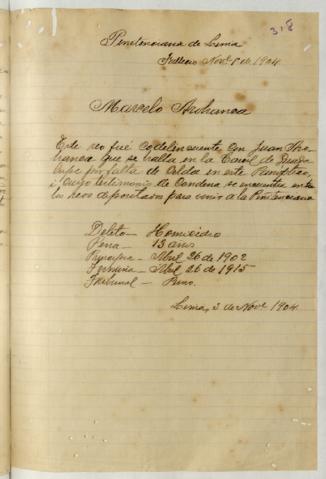 318
Penitenciaria de Lima
Novb 5 de 1904
Marcelo
Este reo fué codelincuente con Juan
que se halla en la Carcel de Guada
lupe por falta de Celda en este Panoptico,
i cuyo testimonio de Condena se encuentra en
los reos depositados para venir a la Penitenciaria
Delito - Homicidio
Pena - 13 años
Principia - Abril 26 de 1902
Termina - Abril 26 de 1915
Tribunal -
Lima, 3 de Nove 1904